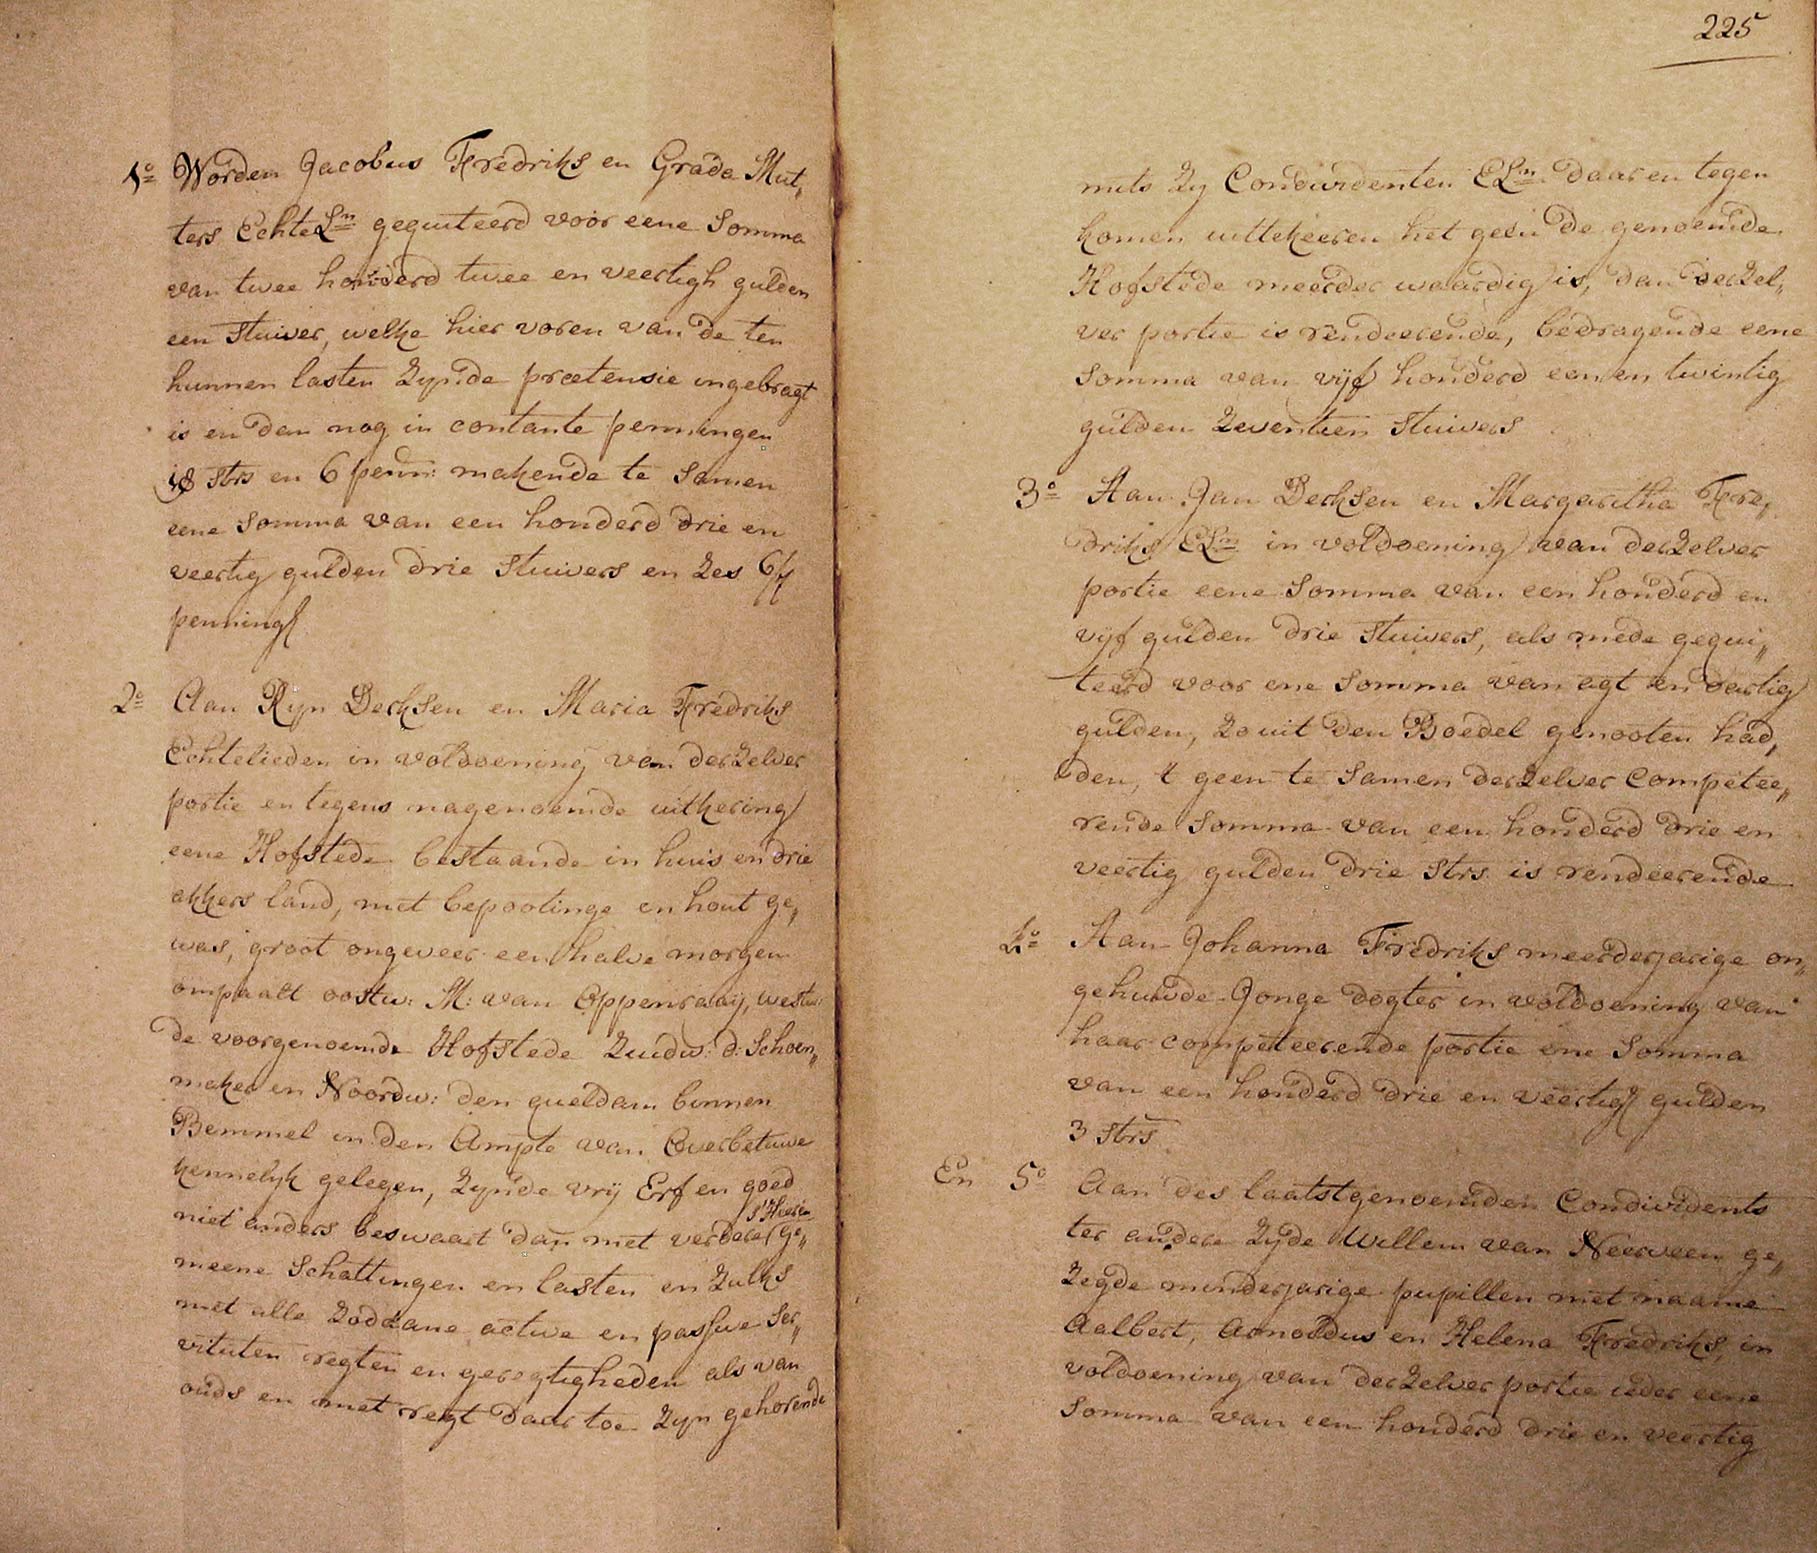 1o Worden Jacobus Fredriks en Grada Mut„
ters EchteLn gequiteerd voor eene Somma
van twee honderd twee en veertigh gulden
een Stuiver, welke hier voren van de ten
hunnen lasten Zynde prætensie ingebragt
is en dan nog in contante penningen
18 Strs en 6 penn: makende te Samen
eene Somma van een honderd drie en
veertig gulden drie Stuivers en Zes 6/
penning
2o Aan Ryn Derksen en Maria Fredriks
Echtelieden in voldoening van derZelver
portie en tegens nagenoemde uitkering
eene Hofstede bestaande in huis en drie
akkers land, met bepootinge en hout ge„
was, groot ongeveer een halve morgen
ompaalt oostw: M: van Oppenraaij, westw:
de voorgenoemde Hofstede Zuidw: d: Schoen„
maker en Noordw: den queldam binnen
Bemmel in den Ampte van Overbetuwe
kennelyk gelegen, Zynde vrij Erf en goed
niet anders beswaart dan met verdere s'Heeren ge„
meene Schattingen en lasten en Zulks
met alle Zodaane active en passive Ser„
vituten regten en geregtigheden als van
ouds en met regt daar toe Zyn gehorende
225
mits Zy Condividenten ELn daar en tegen
komen uittekeeren het geen de genoemde
Hofstede meerder waardig is, dan derZel„
ver portie is rendeerende, bedragende eene
Somma van vijf honderd een en twintig
gulden Zeventien Stuivers
3o Aan Jan Derksen en Margaritha Fre„
driks ELn in voldoening van derZelver
portie eene Somma van een honderd en
vijf gulden drie Stuivers, als mede gequi„
teerd voor ene Somma van agt en dartig
gulden, Zo uit den Boedel genooten had„
den, 't geen te Samen derZelver Competee„
rende Somma van een honderd drie en
veertig gulden drie Strs is rendeerende
4o Aan Johanna Fredriks meerderjarige on„
gehuwde Jonge dogter in voldoening van
haar competeerende portie ene Somma
van een honderd drie en veertig gulden
3 Strs
En 5o Aan des laatstgenoemden Condividents
ter andere Zyde Willem van Neerveen ge„
Zegde minderjarige pupillen met naame
Aalbert, Arnoldus en Helena Fredriks, in
voldoening van derZelver portie ieder eene
Somma van een honderd drie en veertig